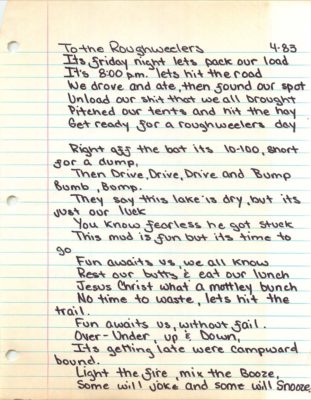 To the Roughweelers 4-83
Its friday night lets pack our load
It's 8:00 p.m. lets hit the road
We drove and ate, then found our spot
Unload our shit that we all brought
Pitched our tents and hit the hay
Get ready for a roughweelers day
Right off the bat its 10-100, short
for a dump,
Then Drive, Drive, Drive and Bump
Bumb, Bomp.
They say this lake is dry, but its
just our luck
You know fearless he got stuck
This mud is fun but its time to
go
Fun awaits us, we all know
Rest our butts & eat our lunch
Jesus Christ what a mottley bunch
No time to waste, lets hit the
trail.
Fun awaits us, without fail.
Over-Under, up & Down,
Its getting late were campward
bound.
Light the fire, mix the Booze,
Some will joke and some will Snooze,